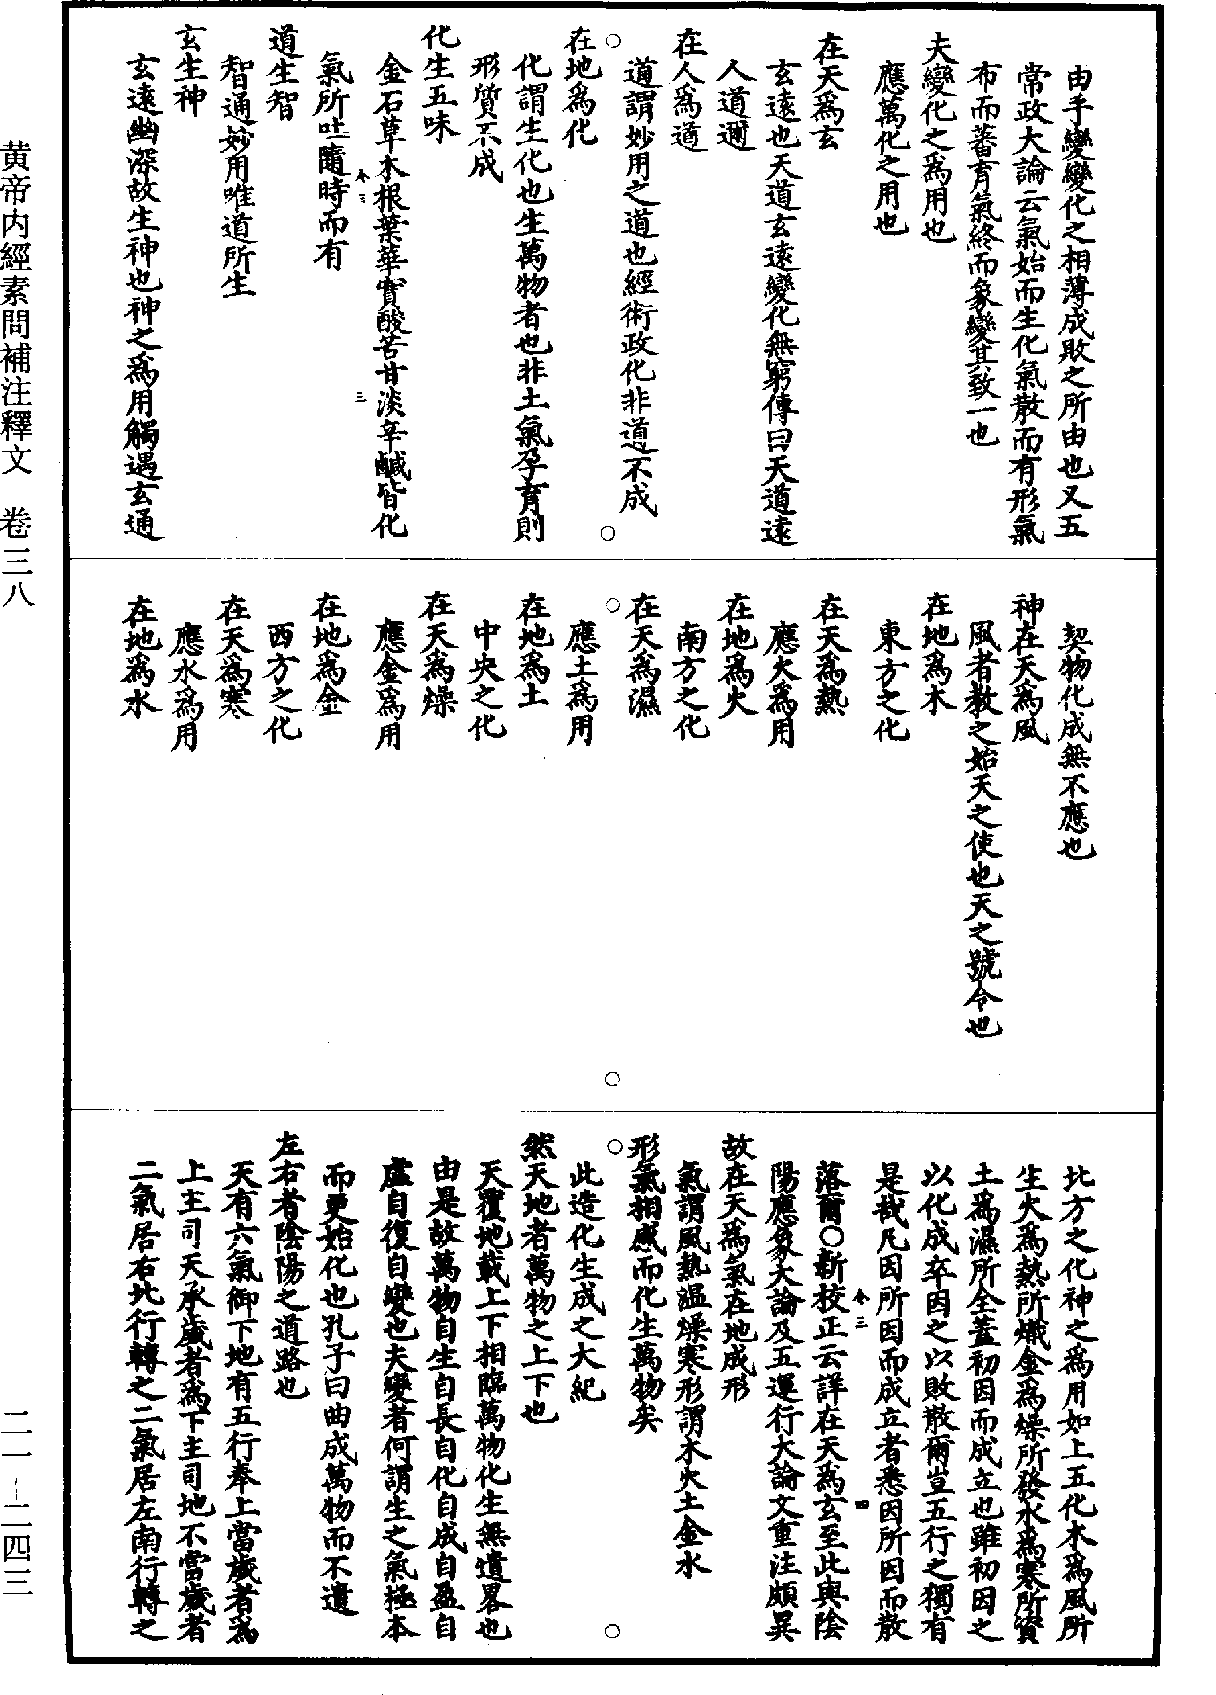 由乎變變化之相薄成敗之所由也又五
常政大論云氣始而生化氣散而有形氣
布而蕃育氣終而象變其致一也
夫變化之爲用也
應萬化之用也
在天爲玄
玄遠也天道玄遠變化無窮傳曰天道遠
人道邇
在人爲道
道謂妙用之道也經術政化非道不成
在地爲化
化謂生化也生萬物者也非土氣孕育則
形質不成
化生五味
金石草木根葉華實酸苦甘淡辛鹹皆化
氣所吐隨時而有
道生智
智通妙用唯道所生
玄生神
玄遠幽深故生神也神之爲用觸遇玄通
契物化成無不應也
神在天爲風
風者教之始天之使也天之號令也
在地爲木
東方之化
在天爲熱
應火爲用
在地爲火
南方之化
在天爲濕
應土爲用
在地爲土
中央之化
在天爲燥
應金爲用
在地爲金
西方之化
在天爲寒
應水爲用
在地爲水
北方之化神之爲用如上五化木爲風所
生火爲熱所熾金爲燥所發水爲寒所資
土爲濕所全蓋初因而成立也雖初因之
以化成卒因之以敗散爾豈五行之獨有
是哉凡因所因而成立者悉因所因而散
落爾○新校正云詳在天爲玄至此與陰
陽應象大論及五運行大論文重注頗異
故在天爲氣在地成形
氣謂風熱溫燥寒形謂木火土金水
形氣相感而化生萬物矣
此造化生成之大紀
然天地者萬物之上下也
天覆地載上下相臨萬物化生無遺畧也
由是故萬物自生自長自化自成自盈自
虛自復自變也夫變者何謂生之氣極本
而更始化也孔子曰曲成萬物而不遺
左右者陰陽之道路也
天有六氣御下地有五行奉上當歲者爲
上主司天承歲者爲下主司地不當歲者
二氣居右北行轉之二氣居左南行轉之
黄帝内經素問補注釋文　卷三八
二一—二四三